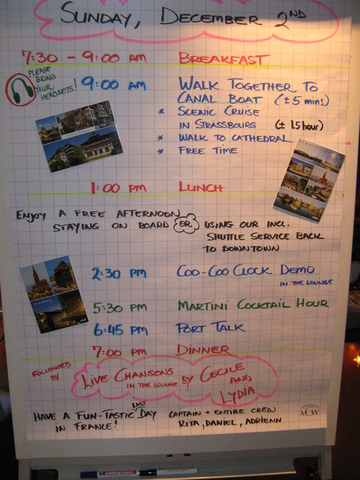 SUNDAY, DECEMBER 2ND
7:30 - 9:00 AM BREAKFAST
PLEASE BRING YOUR HEADSETS!
9:00 AM WALK TOGETHER TO
CANAL BOAT (± 5 min!)
* SCENIC CRUISE
IN STRASSBOURG (± 1.5 hour)
* WALK TO CATHEDRAL
* FREE TIME
1:00 PM LUNCH
ENJOY A FREE AFTERNOON
STAYING ON BOARD OR USING OUR INCL.
SHUTTLE SERVICE BACK
TO DOWNTOWN
2:30 PM COO-COO CLOCK DEMO
IN THE LOUNGE
5:30 PM MARTINI COCKTAIL HOUR
6:45 PM PORT TALK
7:00 PM DINNER
FOLLOWED BY
LIVE CHANSONS BY CECILE
IN THE LOUNGE AND
LYDIA
HAVE A FUN-TASTIC LAST DAY
IN FRANCE!
CAPTAIN + ENTIRE CREW
RITA, DANIEL, ADRIENN